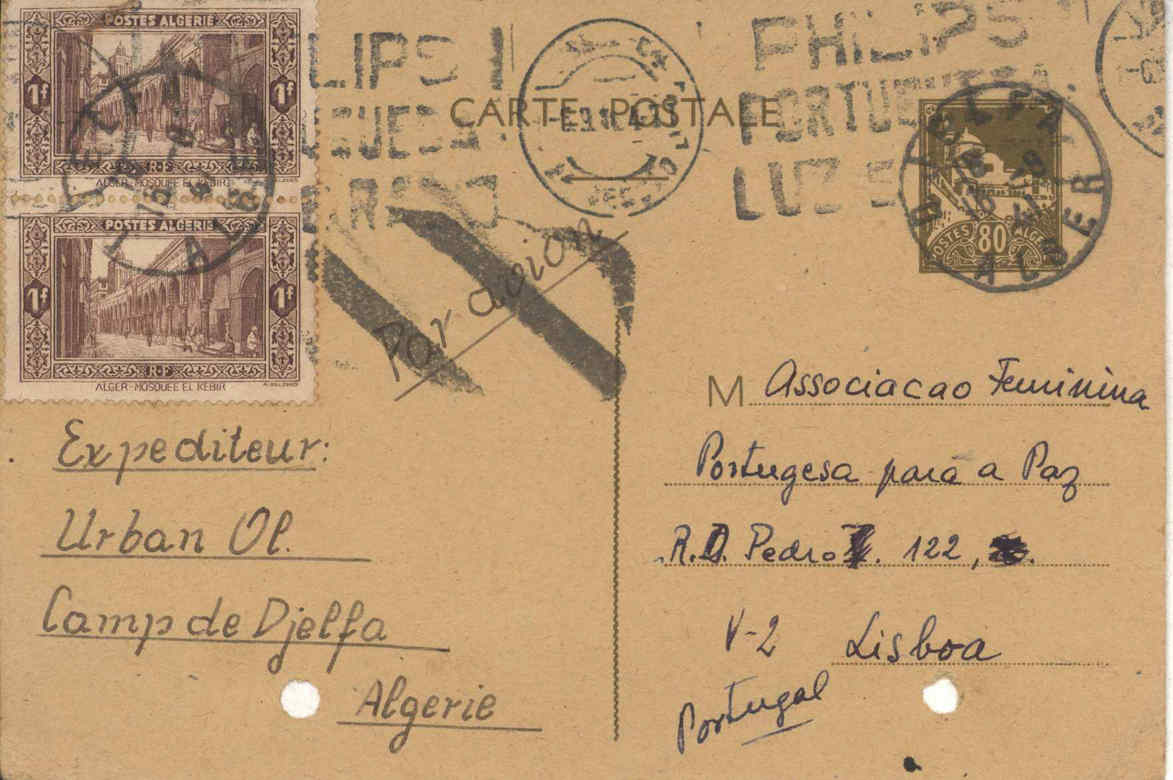 POSTES ALGERIE
1f 1f
ALGER-MOSQUEE EL KEBIR
POSTES ALGERIE
1f 1f
ALGER-MOSQUEE EL KEBIR
PHILIPS
PORTUGUESA
LUZ
CARTE POSTALE
DJELFA
ALGER
POSTES 80 ALGERIE
Par avion
Expediteur:
Urban Ol.
Camp de Djelfa
Algerie
M Associacao Feminina
Portugesa para a Paz
R.D. Pedro 122,
V-2 Lisboa
Portugal